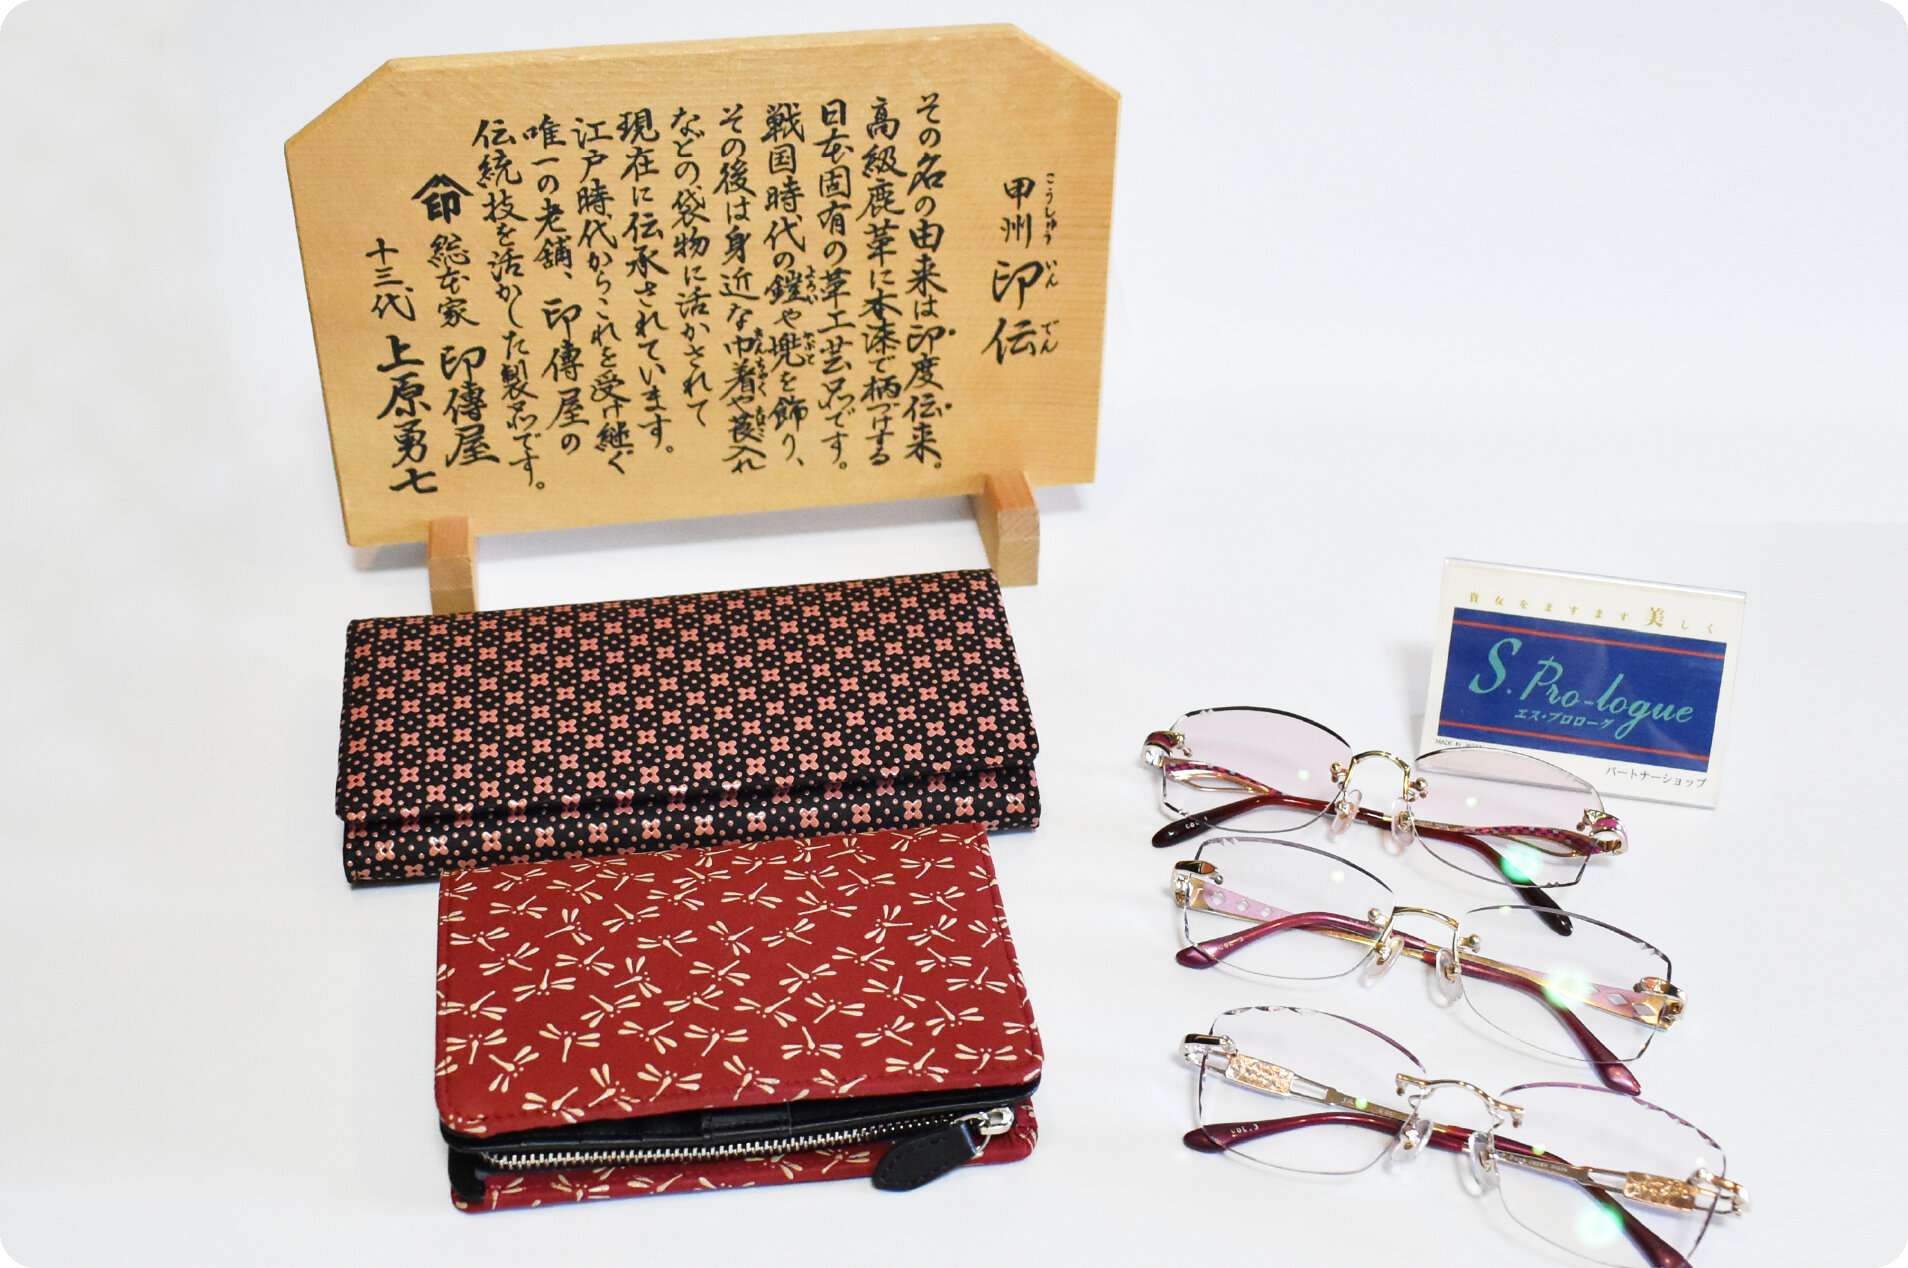 甲州印伝
こうしゅういんでん
その名の由来は印度伝来。
高級鹿革に本漆で柄づけする
日本固有の革工芸品です。
戦国時代の鎧や兜を飾り、
よろい
かぶと
その後は身近な巾着や莨入れ
きんちゃく
たばこ
などの袋物に活かされて
現在に伝承されています。
江戸時代からこれを受け継ぐ
唯一の老舗、印傳屋の
伝統技を活かした製品です。
印 総本家 印傳屋
十三代 上原勇七
貴女をますます美しく
S.Pro-logue
エス・プロローグ
MADE IN JAPAN
パートナーショップ
COL.3
COL.3